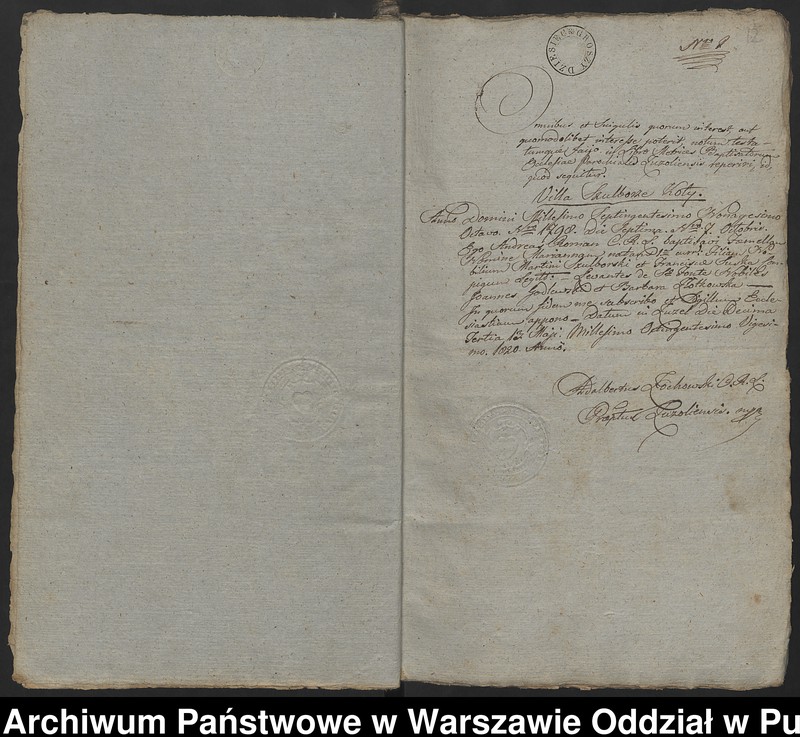 DZIESIĘC GROSZY
Nro 8
Omnibus et Singulis quorum interest, aut
quomodolibet interesse poterit, notum testa-
tumque facio in Libro Metrices Baptisatorum
Ecclesiae Parochialis Zuzoliensis reperiri, id
quod sequitur.
Villa Szulborze Koty.
Anno Domini Millesimo Septingentesimo Nonagesimo
Octavo. Nro 1798. Die Septima Nro 7. Octobris
Ego Andreas Roman C.R.L. baptisavi famellam
Nomine Mariannam, natam
bilium Martini Szulborski et Franciscae
gum Legit: — Levantes de S. Fonte Nobiles
Joannes Godlewski et Barbara Złotkowska —
In quorum fidem me subscribo et Sigillum Eccle
siasticum appono — Datum in Zuzel Die Decima
Tertia 13. Maji. Millesimo Octingentesimo Vigesi-
mo. 1820. Anno.
Adalbertus Żochowski C.R.L.
Praeptus Zuzoliensis. mpp
Archiwum Państwowe w Warszawie Oddział w Pu